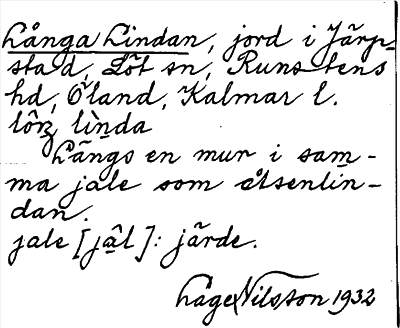 Långa Lindan, jord i Järp-
stad, Löt sn, Runstens
hd, Öland, Kalmar l.
lôŋ lìnda
Längs en mur i sam-
ma jale som åtsenlin-
dan.
jale [jâl]: järde.
Åge Nilsson 1932